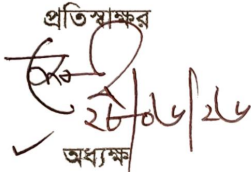 প্রতিস্বাক্ষর
২৮/০৬/২৬
অধ্যক্ষ